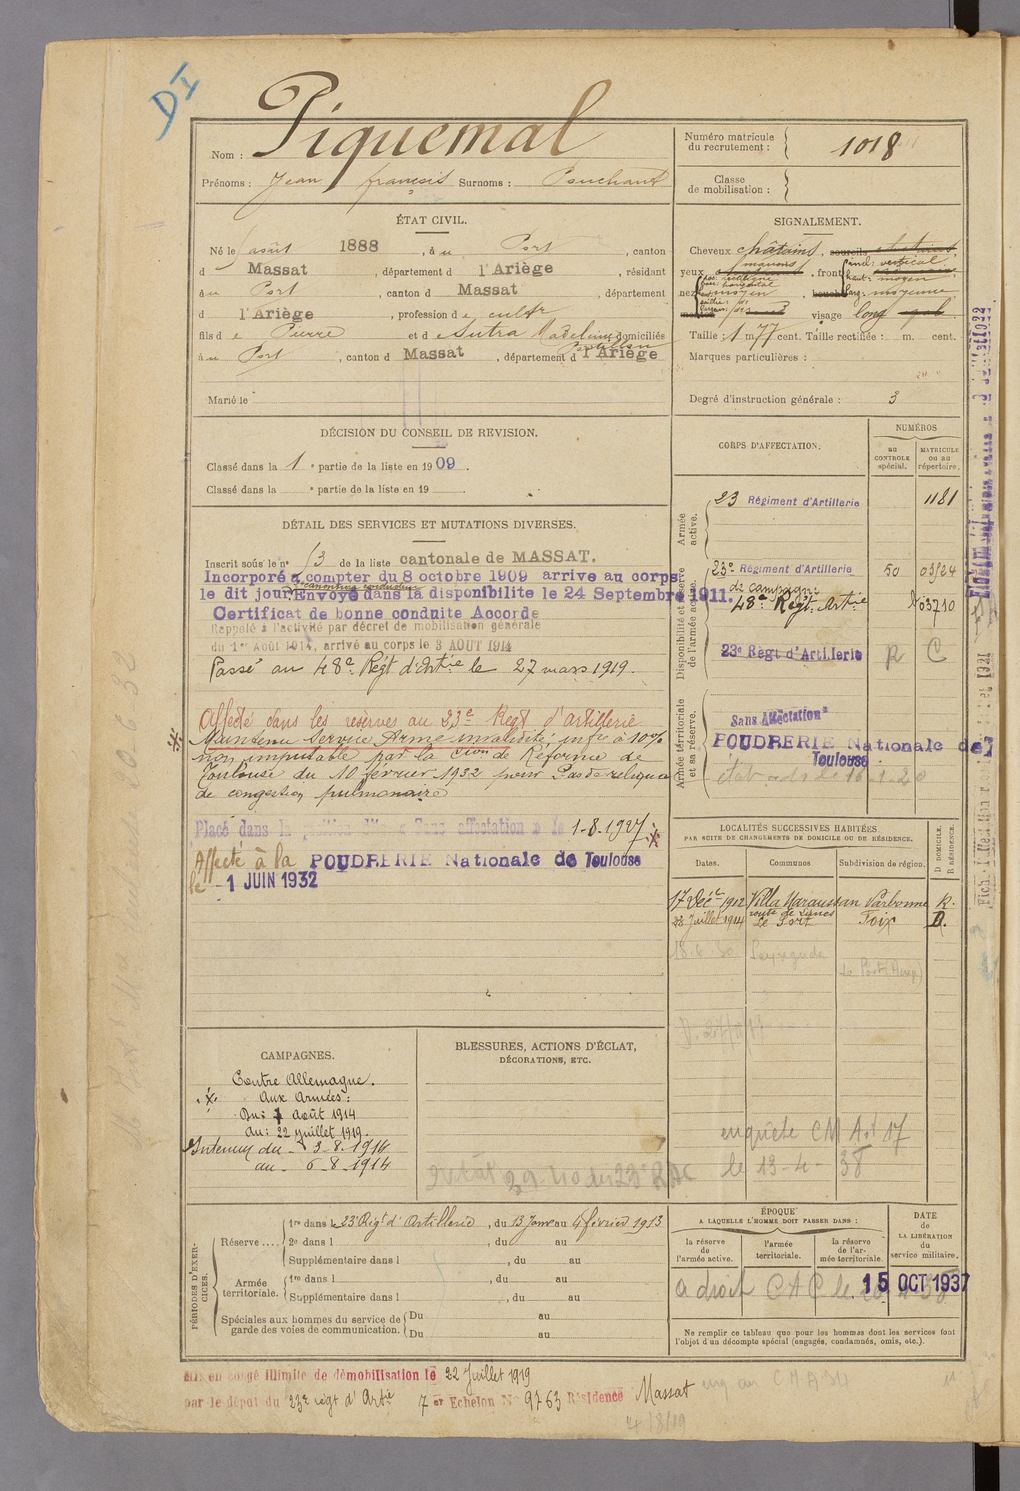 DI
Nom : Piquemal
Prénoms : Jean françois Surnoms :
Numéro matricule
du recrutement : 1018
Classe
de mobilisation :
ÉTAT CIVIL.
Né le août 1888, à u Port, canton
d Massat, département d l'Ariège, résidant
à u Port, canton d Massat, département
d l'Ariège, profession d e cultr
fils d e Pierre et d e Sutra Madeleine domiciliés
à u Port, canton d Massat, département d l'Ariège
Marié le
SIGNALEMENT.
Cheveux châtains, sourcils
yeux marrons, front incl: vertical,
haut: moyen
nez moyen, bouche larg: moyenne
visage long
Taille : 1 m 77 cent. Taille rectifiée : m. cent.
Marques particulières :
Degré d'instruction générale : 3
DÉCISION DU CONSEIL DE REVISION.
Classé dans la 1e partie de la liste en 1909.
Classé dans la e partie de la liste en 19
DÉTAIL DES SERVICES ET MUTATIONS DIVERSES.
Inscrit sous le n° 13 de la liste cantonale de MASSAT.
Incorporé à compter du 8 octobre 1909 arrive au corps
le dit jour, Envoyé dans la disponibilite le 24 Septembre 1911.
Certificat de bonne conduite Accorde
Rappelé à l'activité par décret de mobilisation générale
du 1er Août 1914, arrivé au corps le 3 AOUT 1914
Passé au 48e Régt d'Artie le 27 mars 1919.
Affecté dans les réserves au 23e Régt d'artillerie
Maintenu Service Armé invalidité infre à 10%
non imputable par la Cion de Réforme de
Toulouse du 10 février 1932 pour Pas de reliquat
de congestion pulmonaire
Placé dans la position dite « Sans affectation » le 1-8-1927
Affecté à la POUDRERIE Nationale de Toulouse
le 1 JUIN 1932
CORPS D'AFFECTATION.
NUMÉROS
au
CONTROLE
spécial.
MATRICULE
ou au
répertoire.
Armée
active.
23 Régiment d'Artillerie 1181
Disponibilité et réserve
de l'armée active.
23e Régiment d'Artillerie 50 03/24
de campagne
48e Régt. Artie 03710
23e Règt d'Artillerie R C
Armée territoriale
et sa réserve.
Sans Affectation
POUDRERIE Nationale de
Toulouse
LOCALITÉS SUCCESSIVES HABITÉES
PAR SUITE DE CHANGEMENTS DE DOMICILE OU DE RÉSIDENCE.
Dates. Communes Subdivision de région. D DOMICILE. R RÉSIDENCE.
17 Déc 1912 Villa Maraussan Narbonne R.
route de
22 Juillet 1914 Le Port Foix D.
18-6-30 Le Port (Ariège)
enquête CM Art 17
le 13-4-38
CAMPAGNES.
Contre Allemagne.
Aux Armées :
Du: 7 Août 1914
Au: 22 juillet 1919.
Intérieur du 3-8-1914
au 6-8-1914
BLESSURES, ACTIONS D'ÉCLAT,
DÉCORATIONS, ETC.
PÉRIODES D'EXERCICES.
Réserve ....
1re dans le 23e Régt d'Artillerie, du 13 Janv au 4 février 1913
2e dans l , du au
Supplémentaire dans l , du au
Armée
territoriale.
1re dans l , du au
Supplémentaire dans l , du au
Spéciales aux hommes du service de
garde des voies de communication.
Du au
Du au
ÉPOQUE
A LAQUELLE L'HOMME DOIT PASSER DANS :
la réserve
de
l'armée active.
l'armée
territoriale.
la réserve
de l'ar-
mée territoriale.
DATE
de
LA LIBÉRATION
du
service militaire.
a droit CAC le
15 OCT 1937
Ne remplir ce tableau que pour les hommes dont les services font
l'objet d'un décompte spécial (engagés, condamnés, omis, etc.).
Mis en congé illimité de démobilisation le 22 Juillet 1919
par le dépôt du 23e régt d'Artie 7e Echelon N° 9763 Résidence Massat